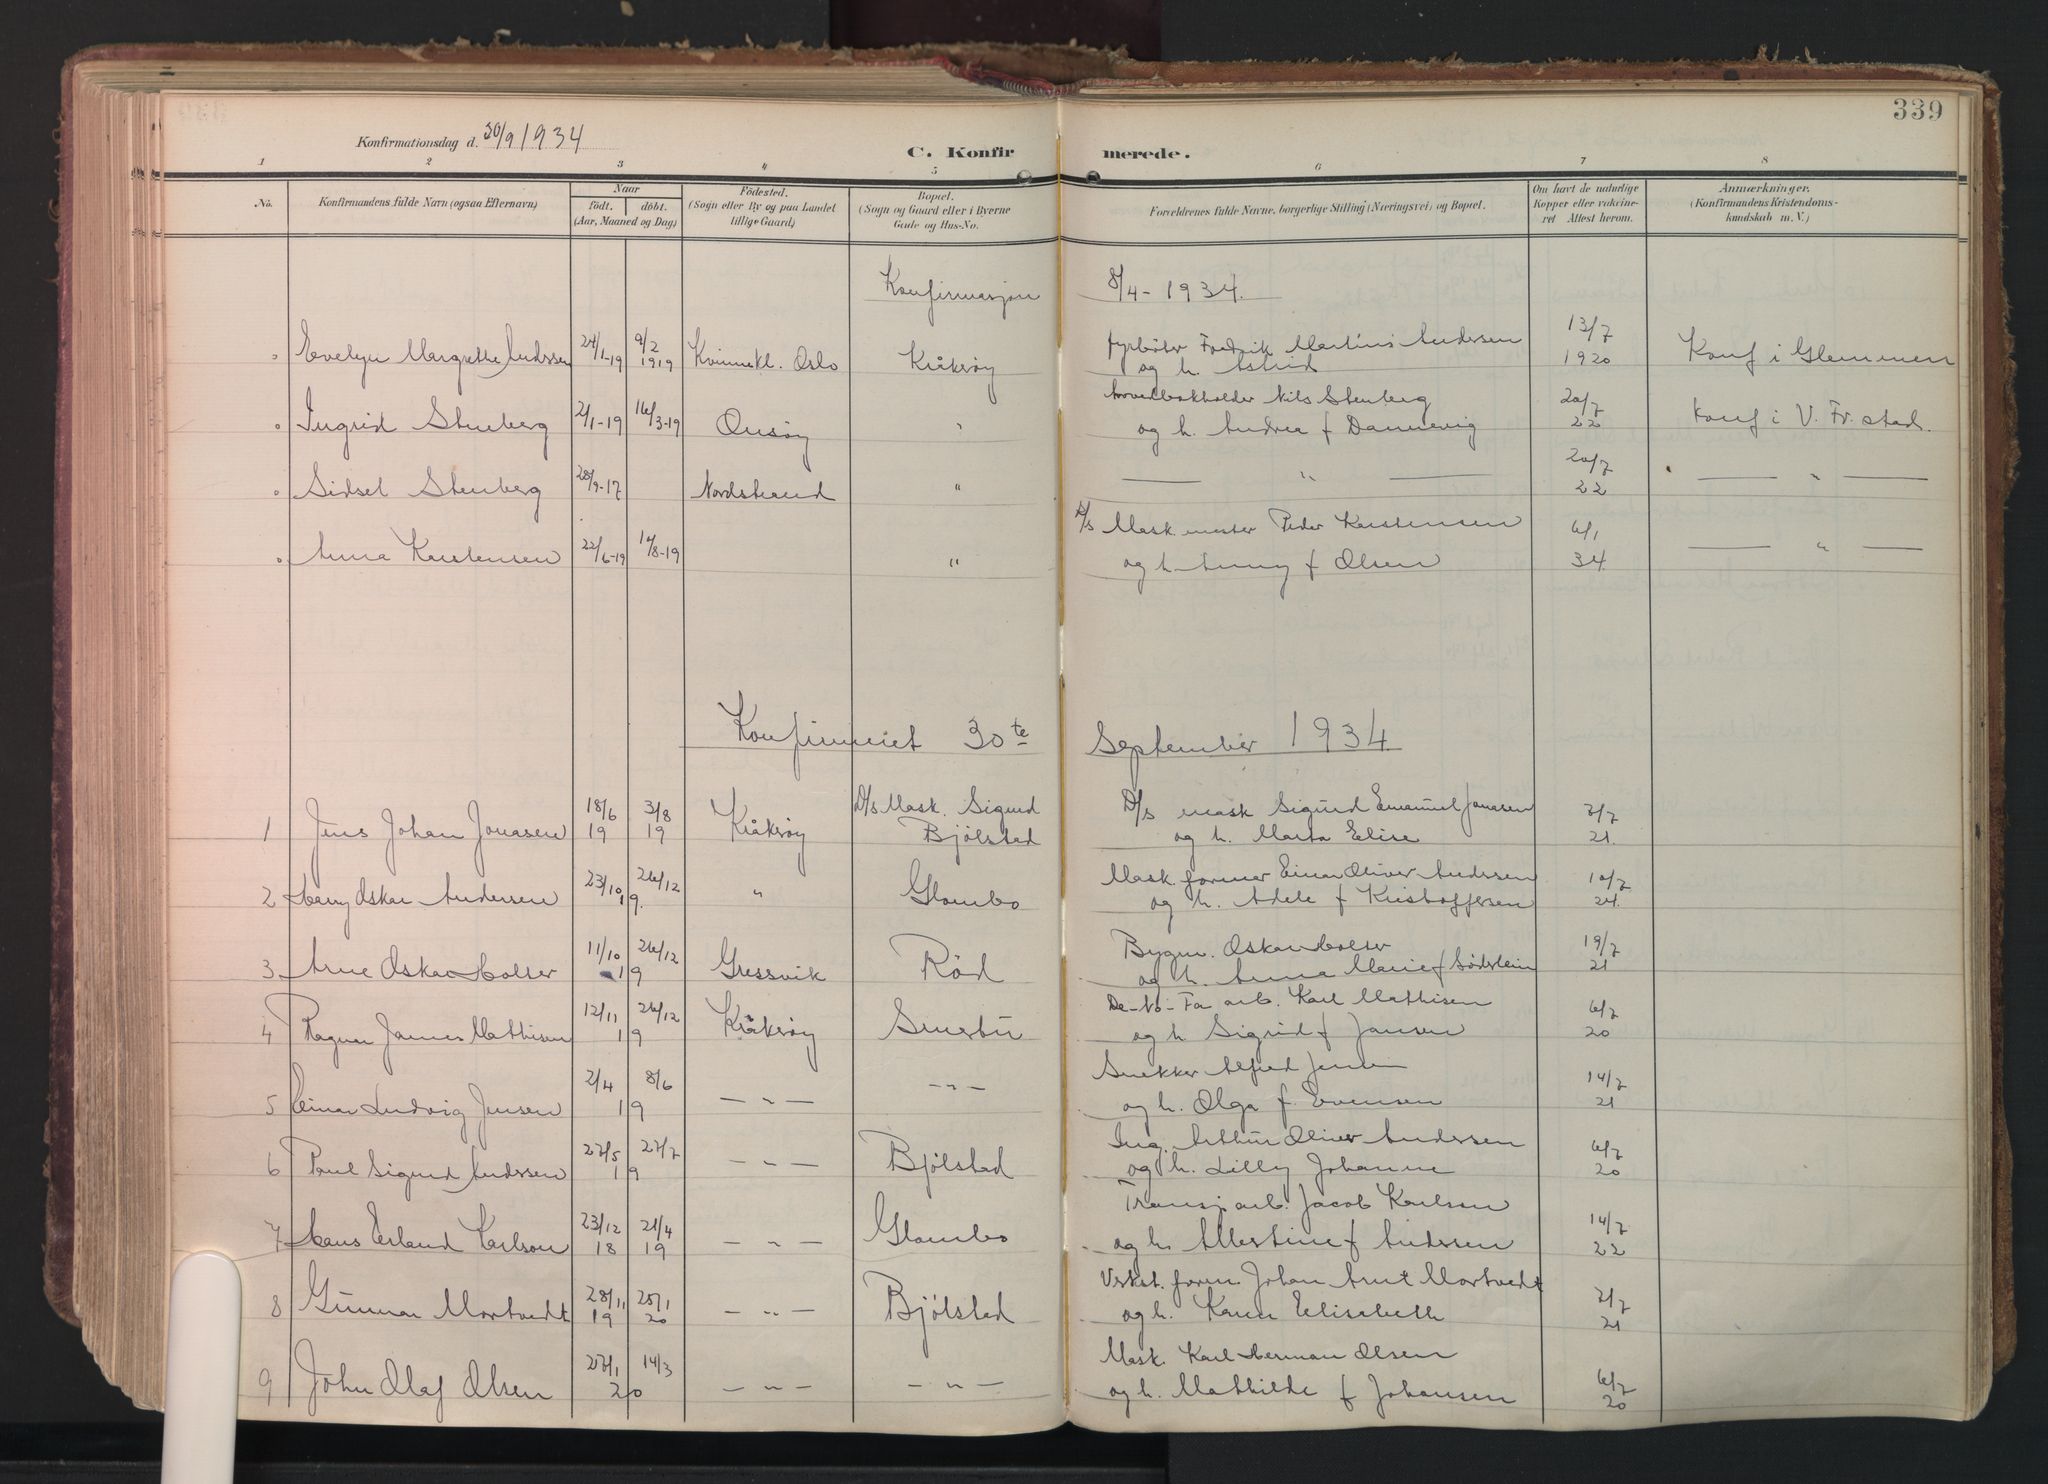 339
Konfirmationsdag d. 30/9 1934
C. Konfirmerede.
1 2 3 4 5 6 7 8
No. Konfirmandens fulde Navn (ogsaa Efternavn) Naar födt. döbt. (Aar, Maaned og Dag) Födested. (Sogn eller By og paa Landet tillige Gaard) Bopæl. (Sogn og Gaard eller i Byerne Gade og Hus-No. Forældrenes fulde Navne, borgerlige Stilling (Næringsvei) og Bopæl. Om havt de naturlige Kopper eller vakcineret Attest herom. Anmærkninger. (Konfirmandens Kristendomskundskab m. V.)
Konfirmasjon 8/4 - 1934.
Evelyn Margrethe Anderssen 24/1-19 9/2 1919 Kvinnekl. Oslo Kråkerøy fyrbøter Fredrik Martins Andersen 13/7
og h. Astrid 1920 Konf i Glemmen
Ingrid Stenberg 2/1-19 16/3-19 Onsøy " hovedbokholder Nils Stenberg 20/7
og h. Andrea f Dannevig 22 Konf i V. Fr.stad.
Sidsel Stenberg 28/9-17 Nordstrand " — " — 20/7 22 — " —
Anna Karstensen 22/6-19 10/8-19 " D/s Mask.mester Peder Karstensen 6/1
og h. Anny f Olsen 34 — " —
Konfirmert 30te September 1934
1 Jens Johan Jonasen 18/6 19 3/8 19 Kråkerøy D/s Mask. Sigurd Bjølstad D/s mask Sigurd Emanuel Jonasen
og h. Marta Elise 3/7 21.
2 Harry Oskar Andersen 23/10 26/12 19. " Glombo Mask.former Einar Oliver Andersen
og h. Adele f Kristoffersen 10/7 24.
3 Arne Oskar Holser 11/10 26/12 19 Gressvik Rød Bygm. Oskar Holser
og h. Anna Marie f 19/7 21
4 Ragnar James Mathisen 12/11 26/12 19 Kråkerøy Smertu De-No-Fa arb. Karl Mathisen
og h Sigrid f Jansen 6/7 20
5 Einar Ludvig Jensen 2/4 8/6 19 — " — — " — Snekker Alfred Jensen
og h. Olga f. Evensen 14/7 21
6 Paul Sigurd Andersen 27/5 27/7 19 — " — Bjølstad Ing. Arthur Oliver Andersen
og h. Lilly Johanne 6/7 20
7 Hans Erland Karlson 23/12 18 21/4 19 — " — Glombo Transp arb. Jacob Karlsen
og h. Albertine f Andersen 14/7 22
8 Gunnar Mortvedt 28/11 19 25/1 20 — " — Bjølstad Verkst. form. Johan Arnt Mortvedt
og h. Karen Elisabeth 2/7 21
9 John Olaf Olsen 27/1 14/3 20 — " — — " — Mask. Karl Herman Olsen
og h. Mathilde f Johansen 6/7 20